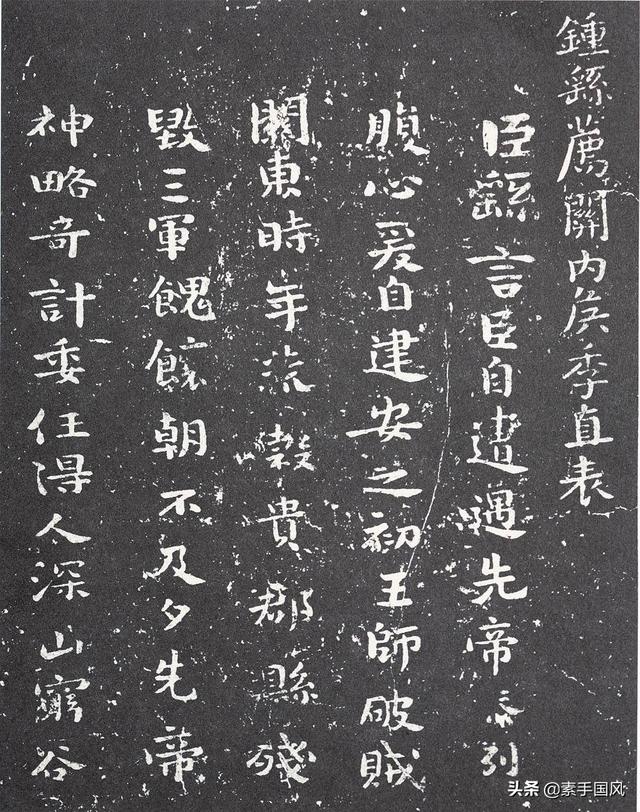 鍾繇薦關内侯季直表
臣繇言臣自遭遇先帝忝列
腹心爰自建安之初王師破賊
關東時年荒穀貴郡縣殘
毀三軍餽饟朝不及夕先帝
神略奇計委任得人深山窮谷
头条 @素手国风